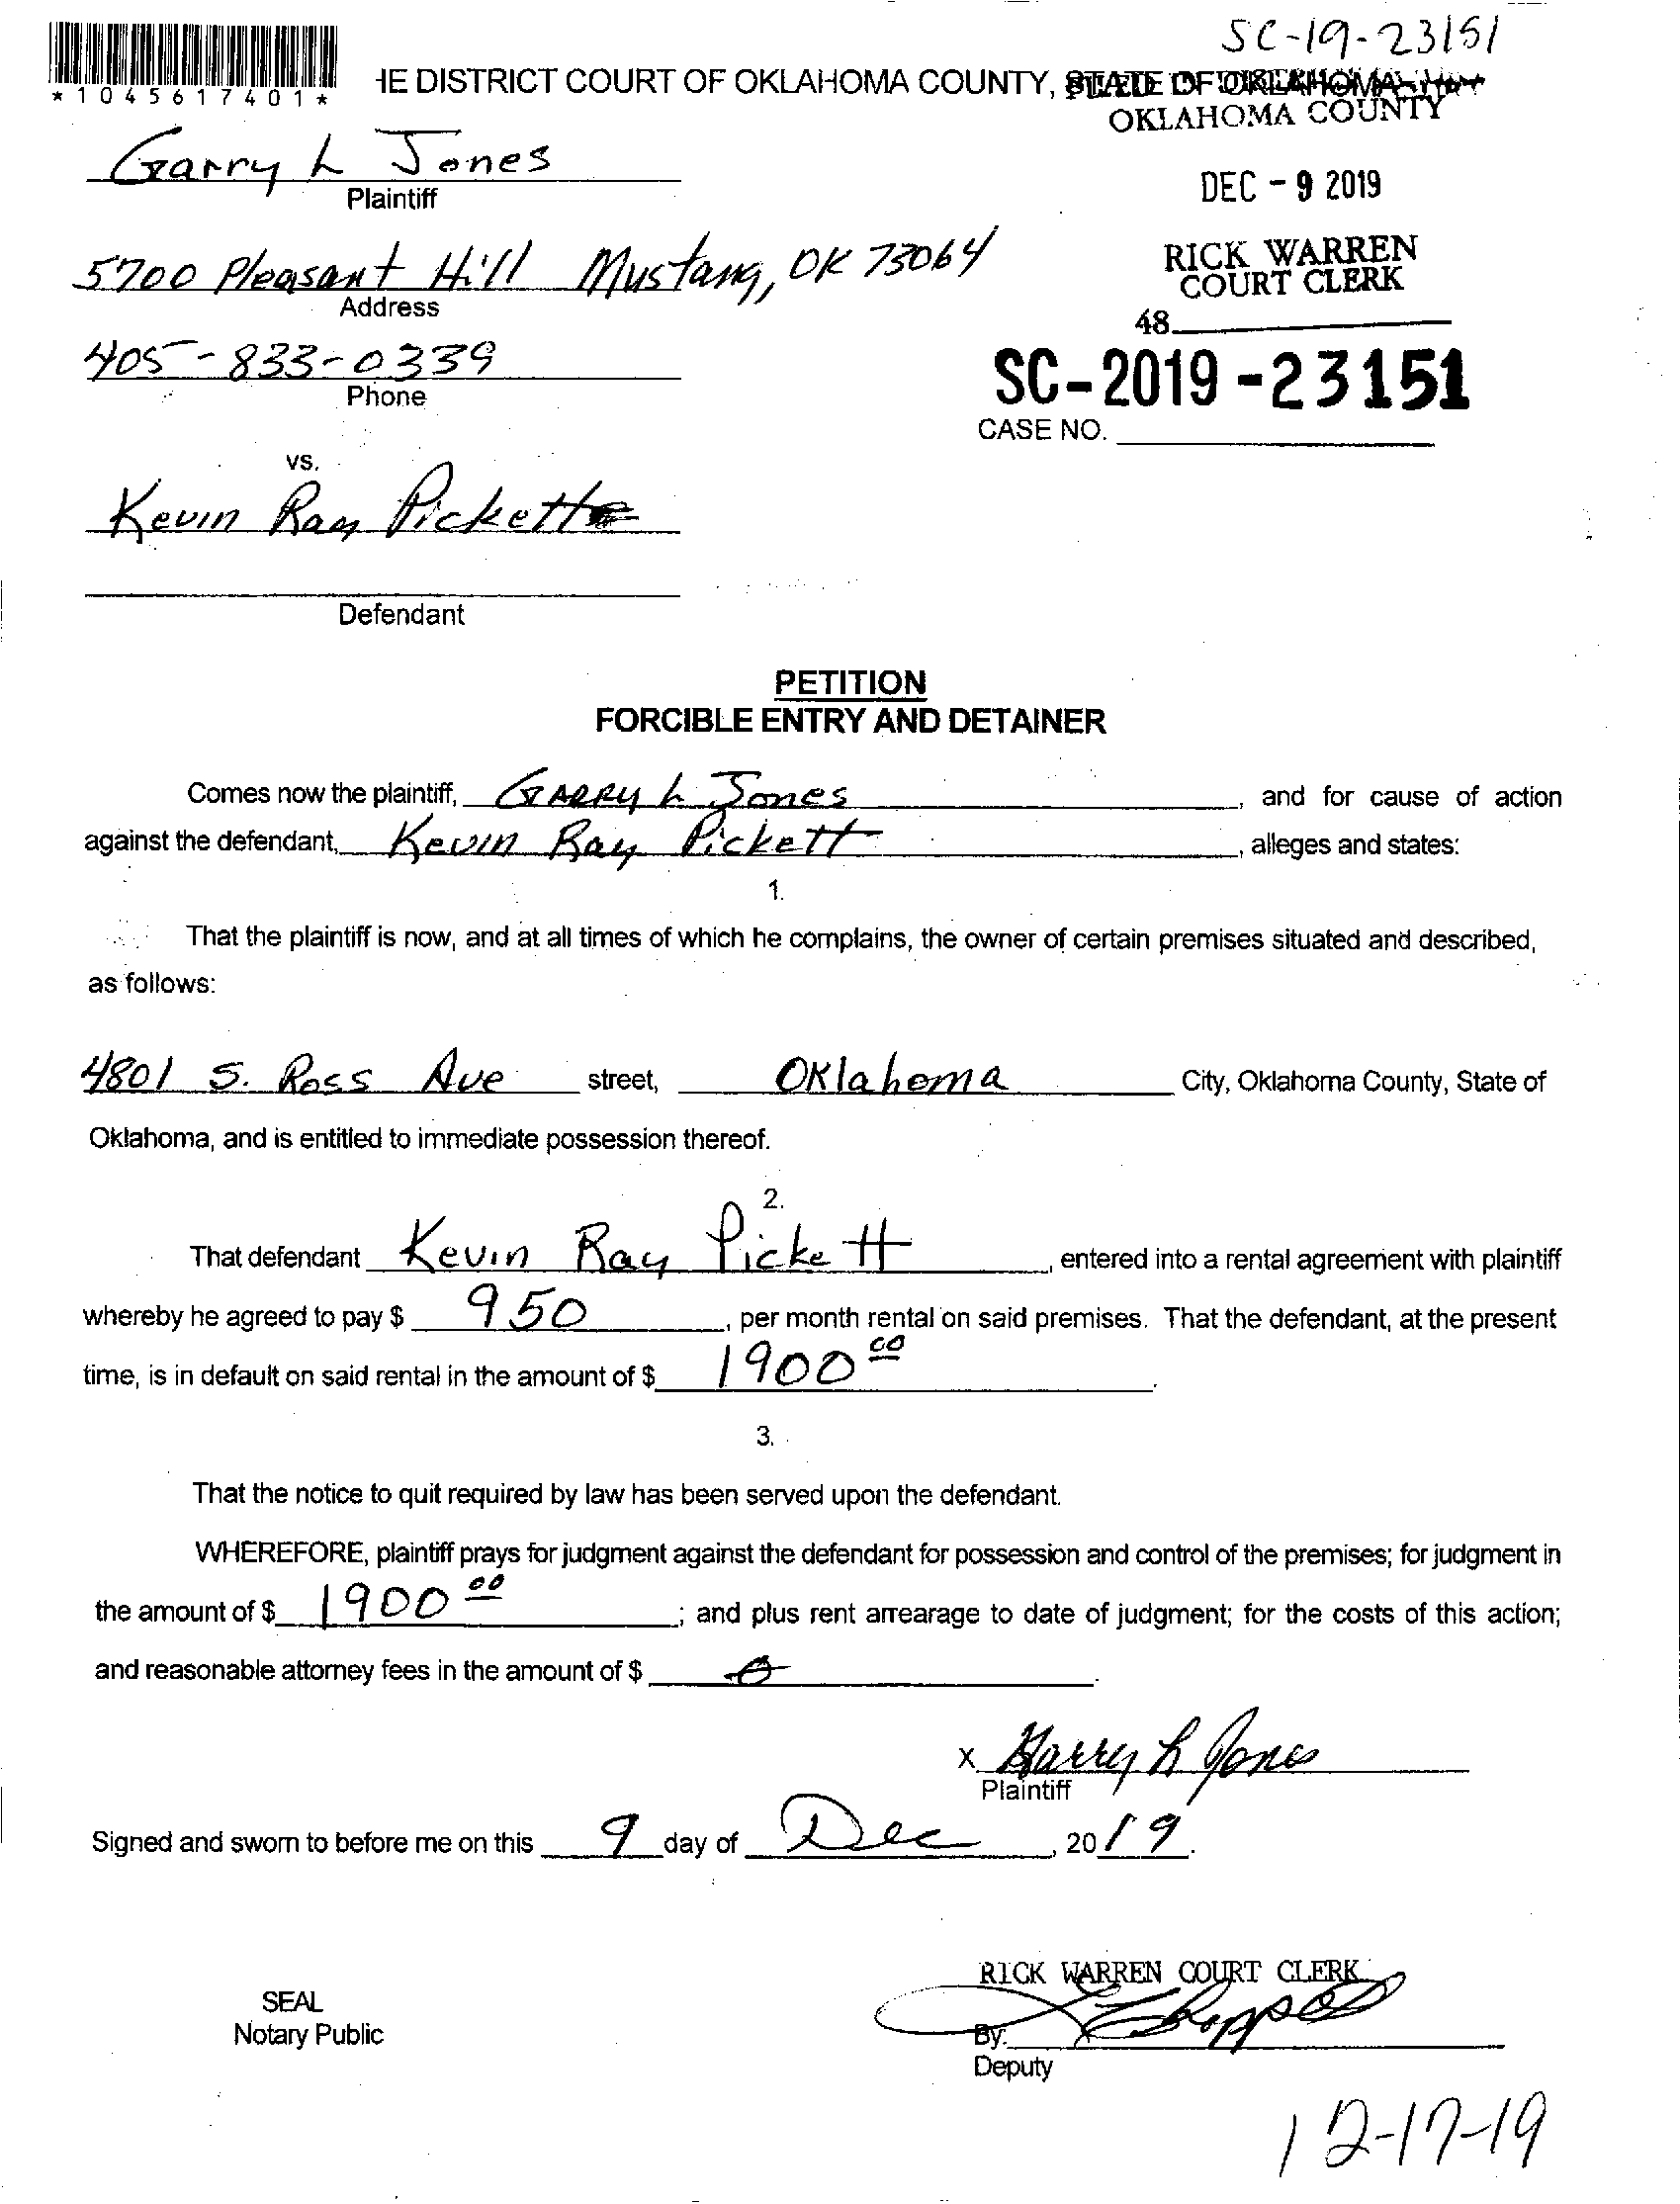 SC-19-23151
*1045617401*
HE DISTRICT COURT OF OKLAHOMA COUNTY, STATE OF OKLAHOMA
OKLAHOMA COUNTY
Garry L Jones
Plaintiff
DEC - 9 2019
5700 Pleasant Hill Mustang, OK 73064
Address
RICK WARREN
COURT CLERK
48
405-833-0339
Phone
SC-2019-23151
CASE NO.
vs.
Kevin Ray Pickett
Defendant
PETITION
FORCIBLE ENTRY AND DETAINER
Comes now the plaintiff, GARRY L Jones, and for cause of action
against the defendant, Kevin Ray Pickett, alleges and states:
1.
That the plaintiff is now, and at all times of which he complains, the owner of certain premises situated and described,
as follows:
4801 S. Ross Ave street, Oklahoma City, Oklahoma County, State of
Oklahoma, and is entitled to immediate possession thereof.
2.
That defendant Kevin Ray Pickett, entered into a rental agreement with plaintiff
whereby he agreed to pay $ 950, per month rental on said premises. That the defendant, at the present
time, is in default on said rental in the amount of $ 1900 00.
3.
That the notice to quit required by law has been served upon the defendant.
WHEREFORE, plaintiff prays for judgment against the defendant for possession and control of the premises; for judgment in
the amount of $ 1900 00; and plus rent arrearage to date of judgment; for the costs of this action;
and reasonable attorney fees in the amount of $ 0.
X Garry L Jones
Plaintiff
Signed and sworn to before me on this 9 day of Dec, 2019.
RICK WARREN COURT CLERK
SEAL
Notary Public
By:
Deputy
12-17-19